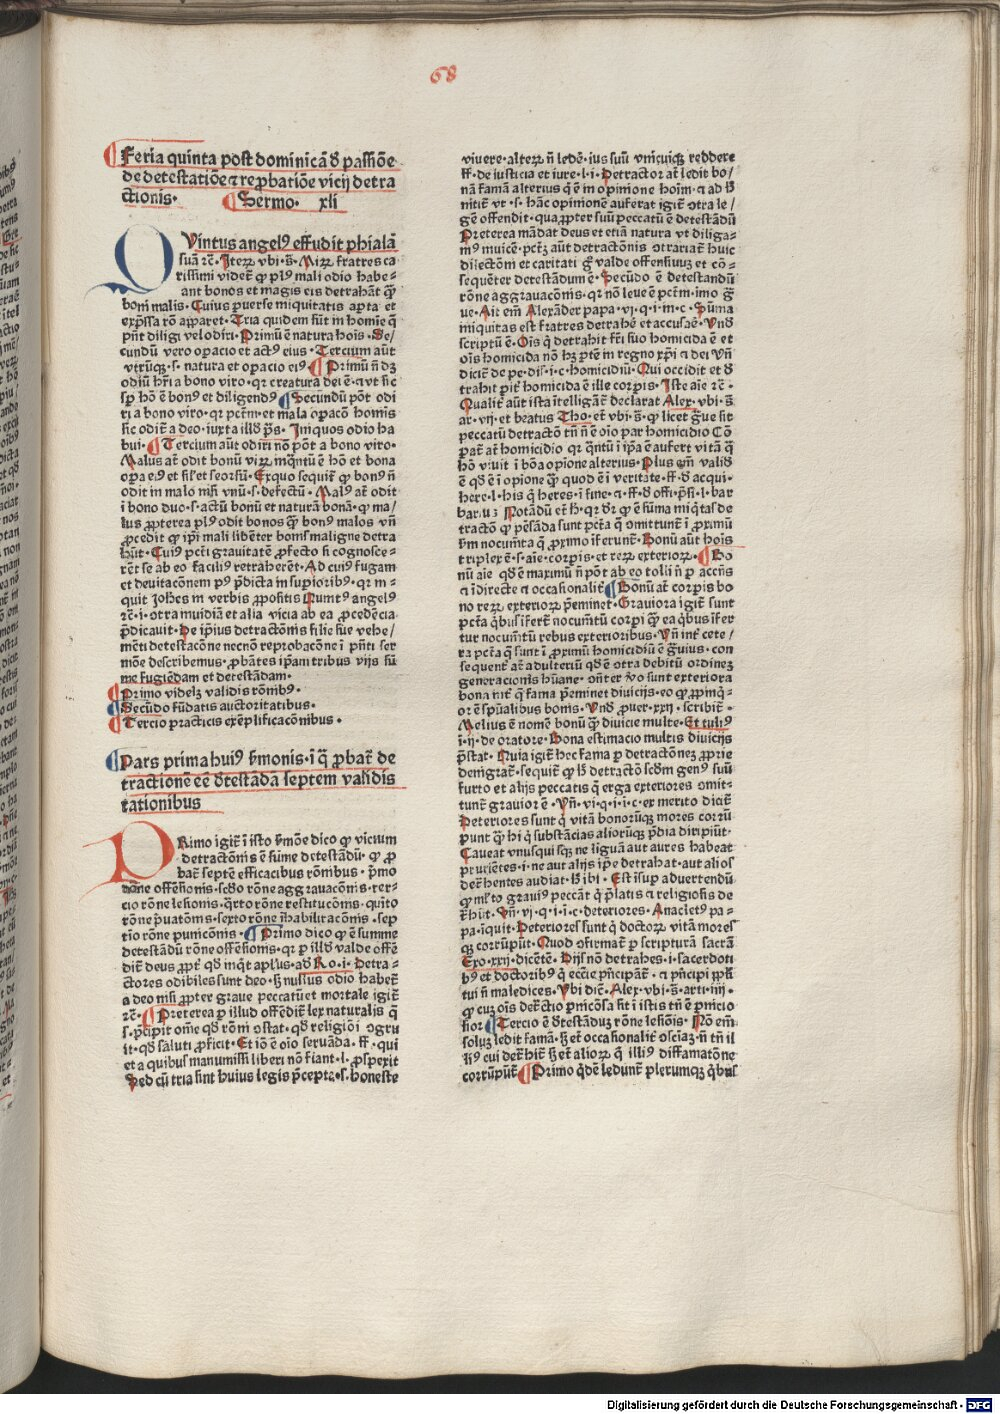 68
Feria quinta post dominicā d̄ passiōe
de detestatiōe ⁊ rep̄batiōe vicij detra
ctionis. Sermo. xli
QVintus angelꝰ effudit phialā
suā ꝛc̄. Iteꝝ vbi. s̄. Miꝝ fratres ca
rissimi videt̄ ꝙ plꝰ mali odio habe-
ant bonos et magis eis detrahāt q̄ꝫ
boni malis. Cuius puerse iniquitatis apta et
exp̄ssa rō apparet. Tria quidem sūt in homīe q̄
pn̄t diligi vel odiri. Primū ē natura hoīs. Se-
cundū vero opacio et actꝰ eius. Tercium aūt
vtrūqꝫ. s. natura et opacio eiꝰ. Primū n̄ dꝫ
odiū hr̄i a bono viro. qꝛ creatura dei ē. ⁊ vt sic
sp̄ hō ē bonꝰ et diligendꝰ Secundū pōt odi
ri a bono viro. qꝛ pctm̄. et mala opacō homīs
sic odit̄ a deo. iuxta illd̄ p̄s. Iniquos odio ha
bui. Tercium aūt odiri nō pōt a bono viro.
Malus at̄ odit bonū viꝝ inq̄ntū ē hō et bona
opa eiꝰ et sil̄ et seorsū. Exquo sequit̄ ꝙ bonꝰ n̄
odit in malo nisi vnū. s. defectū. Malꝰ at̄ odit
i bono duo. s. actū bonū et naturā bonā. ꝙ ma/
lus ppterea plꝰ odit bonos q̄ꝫ bonꝰ malos vn̄
pcedit ꝙ ipī mali libēter bonis maligne detra
hūt. Cuiꝰ pcti grauitatē pfecto si cognosce-
rēt se ab eo faciliꝰ retraherēt. Ad cuiꝰ fugam
et deuitacōnem pꝰ p̄dicta in supioribꝰ. qꝛ in-
quit Ioh̄es in verbis ppositis Quintꝰ angelꝰ
ꝛc̄. i. ↄtra inuidiā et alia vicia ab ea pcedēcia
p̄dicauit. De ipīus detractōnis si̅lic sue vehe/
mēti detestacōne necnō repbacōne i pn̄ti ser
mōne describemus. pbātes ipām tribus vijs sū
me fugiēdam et detestādam.
Primo videlꝫ validis rōnibꝰ.
Secūdo fūdatis auctoritatibus.
Tercio practicis exēplificacōnibus.
Pars prima huiꝰ ẜmonis. i q̄ pbat̄ de
tractionē eē dtestādā septem validis
rationibus
PRimo igit̄ i isto ẜmōe dico ꝙ vicium
detractōnis ē sūme detestādū. ꝙ p
bat̄ septē efficacibus rōnibus. p̄mo
rōne offensionis. scd̄o rōne aggrauacōnis. ter-
cio rōne lesionis. q̄rto rōne restitucōnis. quīto
rōne p̄uatōnis. sexto rōne īhabilitacōnis. sep
tīo rōne punicōnis. Primo dico ꝙ ē summe
detestādū rōne offensionis. qꝛ p illd̄ valde offē
dit̄ deus ppt̄ qd̄ inq̄t apl̄us. ad Ro. i. Detra-
ctores odibiles sunt deo. ẜ nullus odio habet̄
a deo nisi ppter graue peccatū et mortale igit̄
ꝛc̄. Preterea p illud offēdit̄ lex naturalis q̄
s. p̄cipit om̄e qd̄ rōni ↄstat. qd̄ religiōi ↄgru
it. qd̄ saluti pficit. Et iō ē oīo seruāda. ff. qui
et a quibus manumissi liberi nō fiant. l. pspexit
Sed cū tria sint huius legis p̄cepta. s. honeste
viuere. alteꝝ n̄ ledē. ius suū vnicuiqꝫ reddere
ff. de iusticia et iure. l. i. Detractor at̄ ledit bo/
nā famā alterius q̄ ē in opinione hoīm. ⁊ ad b̄
nitit̄ vt. s. hāc opinionē auferat igit̄ ↄtra le/
gē offendit. qua ppter suū peccatū ē detestādū
Preterea mādat deus et etiā natura vt diliga-
mꝰ inuicē. pctꝫ aūt detractōnis ↄtrariat̄ huic
dilectōni et caritati gͦ valde offensiuuꝫ et cō-
sequēter detestādum ē. Secūdo ē detestandū
rōne aggrauacōnis. qꝛ nō leue ē pctm̄. imo g̅
ue. Ait em̄ Alexāder papa. vj. q. i. in. c. Sūma
iniquitas est fratres detrahē et accusaē. Vnd̄
scriptū ē. Oīs q̄ detrahit fr̄i suo homicida ē et
oīs homicida nō hꝫ ptē in regno xp̄i ⁊ dei Vn̄
dicit̄ de pe. dis. i. c. homicidiū. Qui occidit et d̄
trahit pit̄ homicida ē ille corpis. Iste aīe ꝛc̄.
Qualit̄ aūt ista ītelligāt̄ declarat Alex. vbi. s̄.
ar. vij. et beatus Tho. et vbi. s̄. ꝙ licet g̅ue sit
peccatū detractō tn̄ n̄ ē oīo par homicidio Cō
pat̄ at̄ homicidio qꝛ q̄ntū i ipā ē aufert vitā q̄
hō viuit i bōa opīone alterius. Plus em̄ valid̄
ē qd̄ ē i opīone q̄ꝫ quod ē i veritate. ff. d̄ acqui.
here. l. his q̄ heres. i fine. ⁊. ff. d̄ offi. p̄si. l. bar
bariꝰ Notādū et h̄. qꝛ dꝛ ꝙ ē sūma iniq̄tas de
tractō ꝙ pēsāda sunt pcta q̄ omittunt̄ i ꝓximū
ẜm nocumēta q̄ ꝓximo īferunt̄. Bonū aūt hoīs
triplex ē. s. aīe. corpis. et reꝝ exterioꝝ. Bo
nū aīe qd̄ ē maximū n̄ pōt ab eo tolli n̄ p accn̄s
⁊ īdirecte ⁊ occasionalit̄ Bonū at̄ corpis bo
no reꝝ exterioꝝ p̄eminet. Grauiora igit̄ sunt
pcta q̄bus īfert̄ nocumētū corpi q̄ꝫ ea q̄bus īfer
tur nocumētū rebus exterioribus. Vn̄ int̄ cete/
ra pcta q̄ sunt i ꝓximū homicidiū ē g̅uius. con
sequent̄ at̄ adulteriū qd̄ ē ↄtra debitū ordineꝫ
generacionis hūane. ↄn̄ter v̄o sunt exteriora
bona int̄ q̄ fama p̄eminet diuicijs. eo ꝙ ꝓpinq̄-
or ē spūalibus bonis. Vnd̄ puer. xxij. scribit̄.
Melius ē nomē bonū q̄ꝫ diuicie multe. Et tuliꝰ
i. ij. de oratore. Bona estimacio multis diuicijs
p̄stat. Quia igit̄ hec fama p detractōneꝫ ꝓprie
denigrat̄. sequit̄ ꝙ b̄ detractō scd̄m genꝰ suū
furto et alijs peccatis q̄ erga exteriores ↄmit-
tunt̄ grauior ē. Vn̄. vi. q. i. i. c. ex merito dicit̄
Deteriores sunt q̄ vitā bonorūqꝫ mores corrū
punt q̄ꝫ hi q̄ substācias aliorūqꝫ p̄dia diripiūt.
Caueat vnusquisqꝫ ne liguā aut aures habeat
prurientes. i. ne aut alijs ipē detrahat. aut alios
det̄hentes audiat. h̄ ibi. Est īsup aduertendū
ꝙ ml̄to grauiꝰ peccāt q̄ p̄latis ⁊ religiosis de
t̄hūt. Vn̄. vj. q. i. i. c. deteriores. Anacletꝰ pa-
pa. iquit. Deteriores sunt q̄ doctoꝝ vitā mores
qꝫ corrūpūt. Quod ↄfirmat̄ p scripturā sacrā
Exo. xxij. dicētē. Dijs nō detrahes. i. sacerdoti
bꝰ et doctoribꝰ q̄ ecciē p̄ncipāt̄. ⁊ p̄ncipi ppl̄i
tui n̄ maledices. Vbi dic̄. Alex. vbi. s̄. arti. iiij.
ꝙ cuꝫ oīs det̄ctio p̄nicōsa sit i istis tn̄ ē p̄nicio
sior Tercio ē dtestāduꝫ rōne lesionis. Nō em̄
soluꝫ ledit famā. ẜ et occasionalit̄ ↄsciaꝫ. n̄ tn̄ il
liꝰ cui det̄hit̄ ẜ et alioꝝ q̄ illiꝰ diffamatōne
corrūpūt̄ Primo q̄dē ledunt̄ plerumqꝫ q̄bus
Digitalisierung gefördert durch die Deutsche Forschungsgemeinschaft - DFG